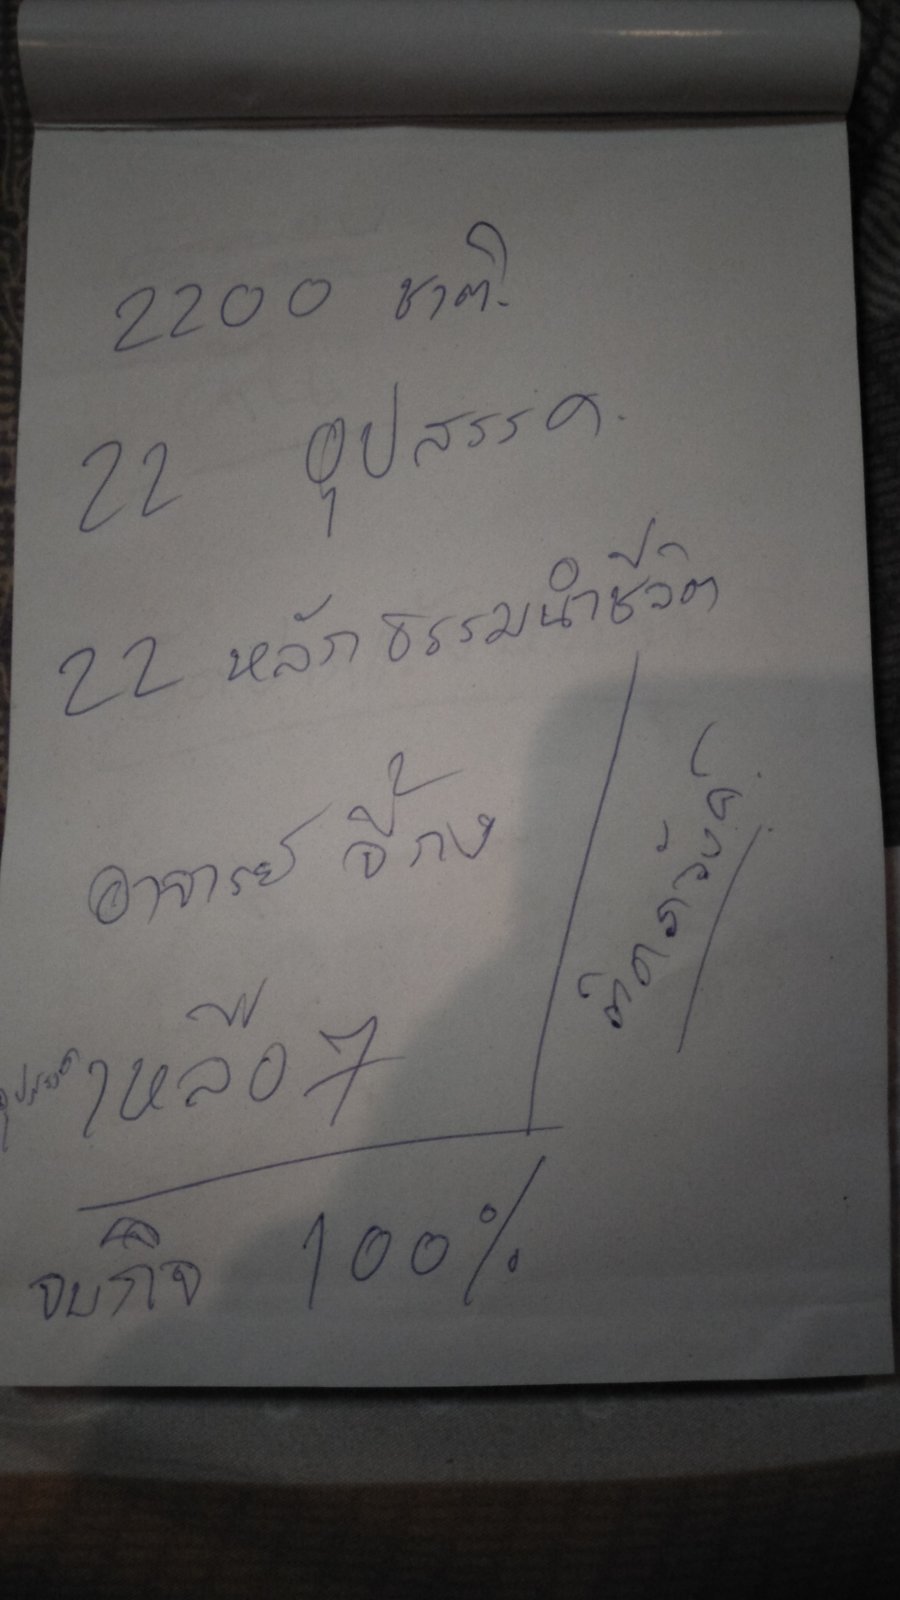 2200 ชาติ
22 อุปสรรค
22 หลักธรรมนำชีวิต
อาจารย์ จี้กง
อุปสรรค เหลือ 7
จบกิจ 100%